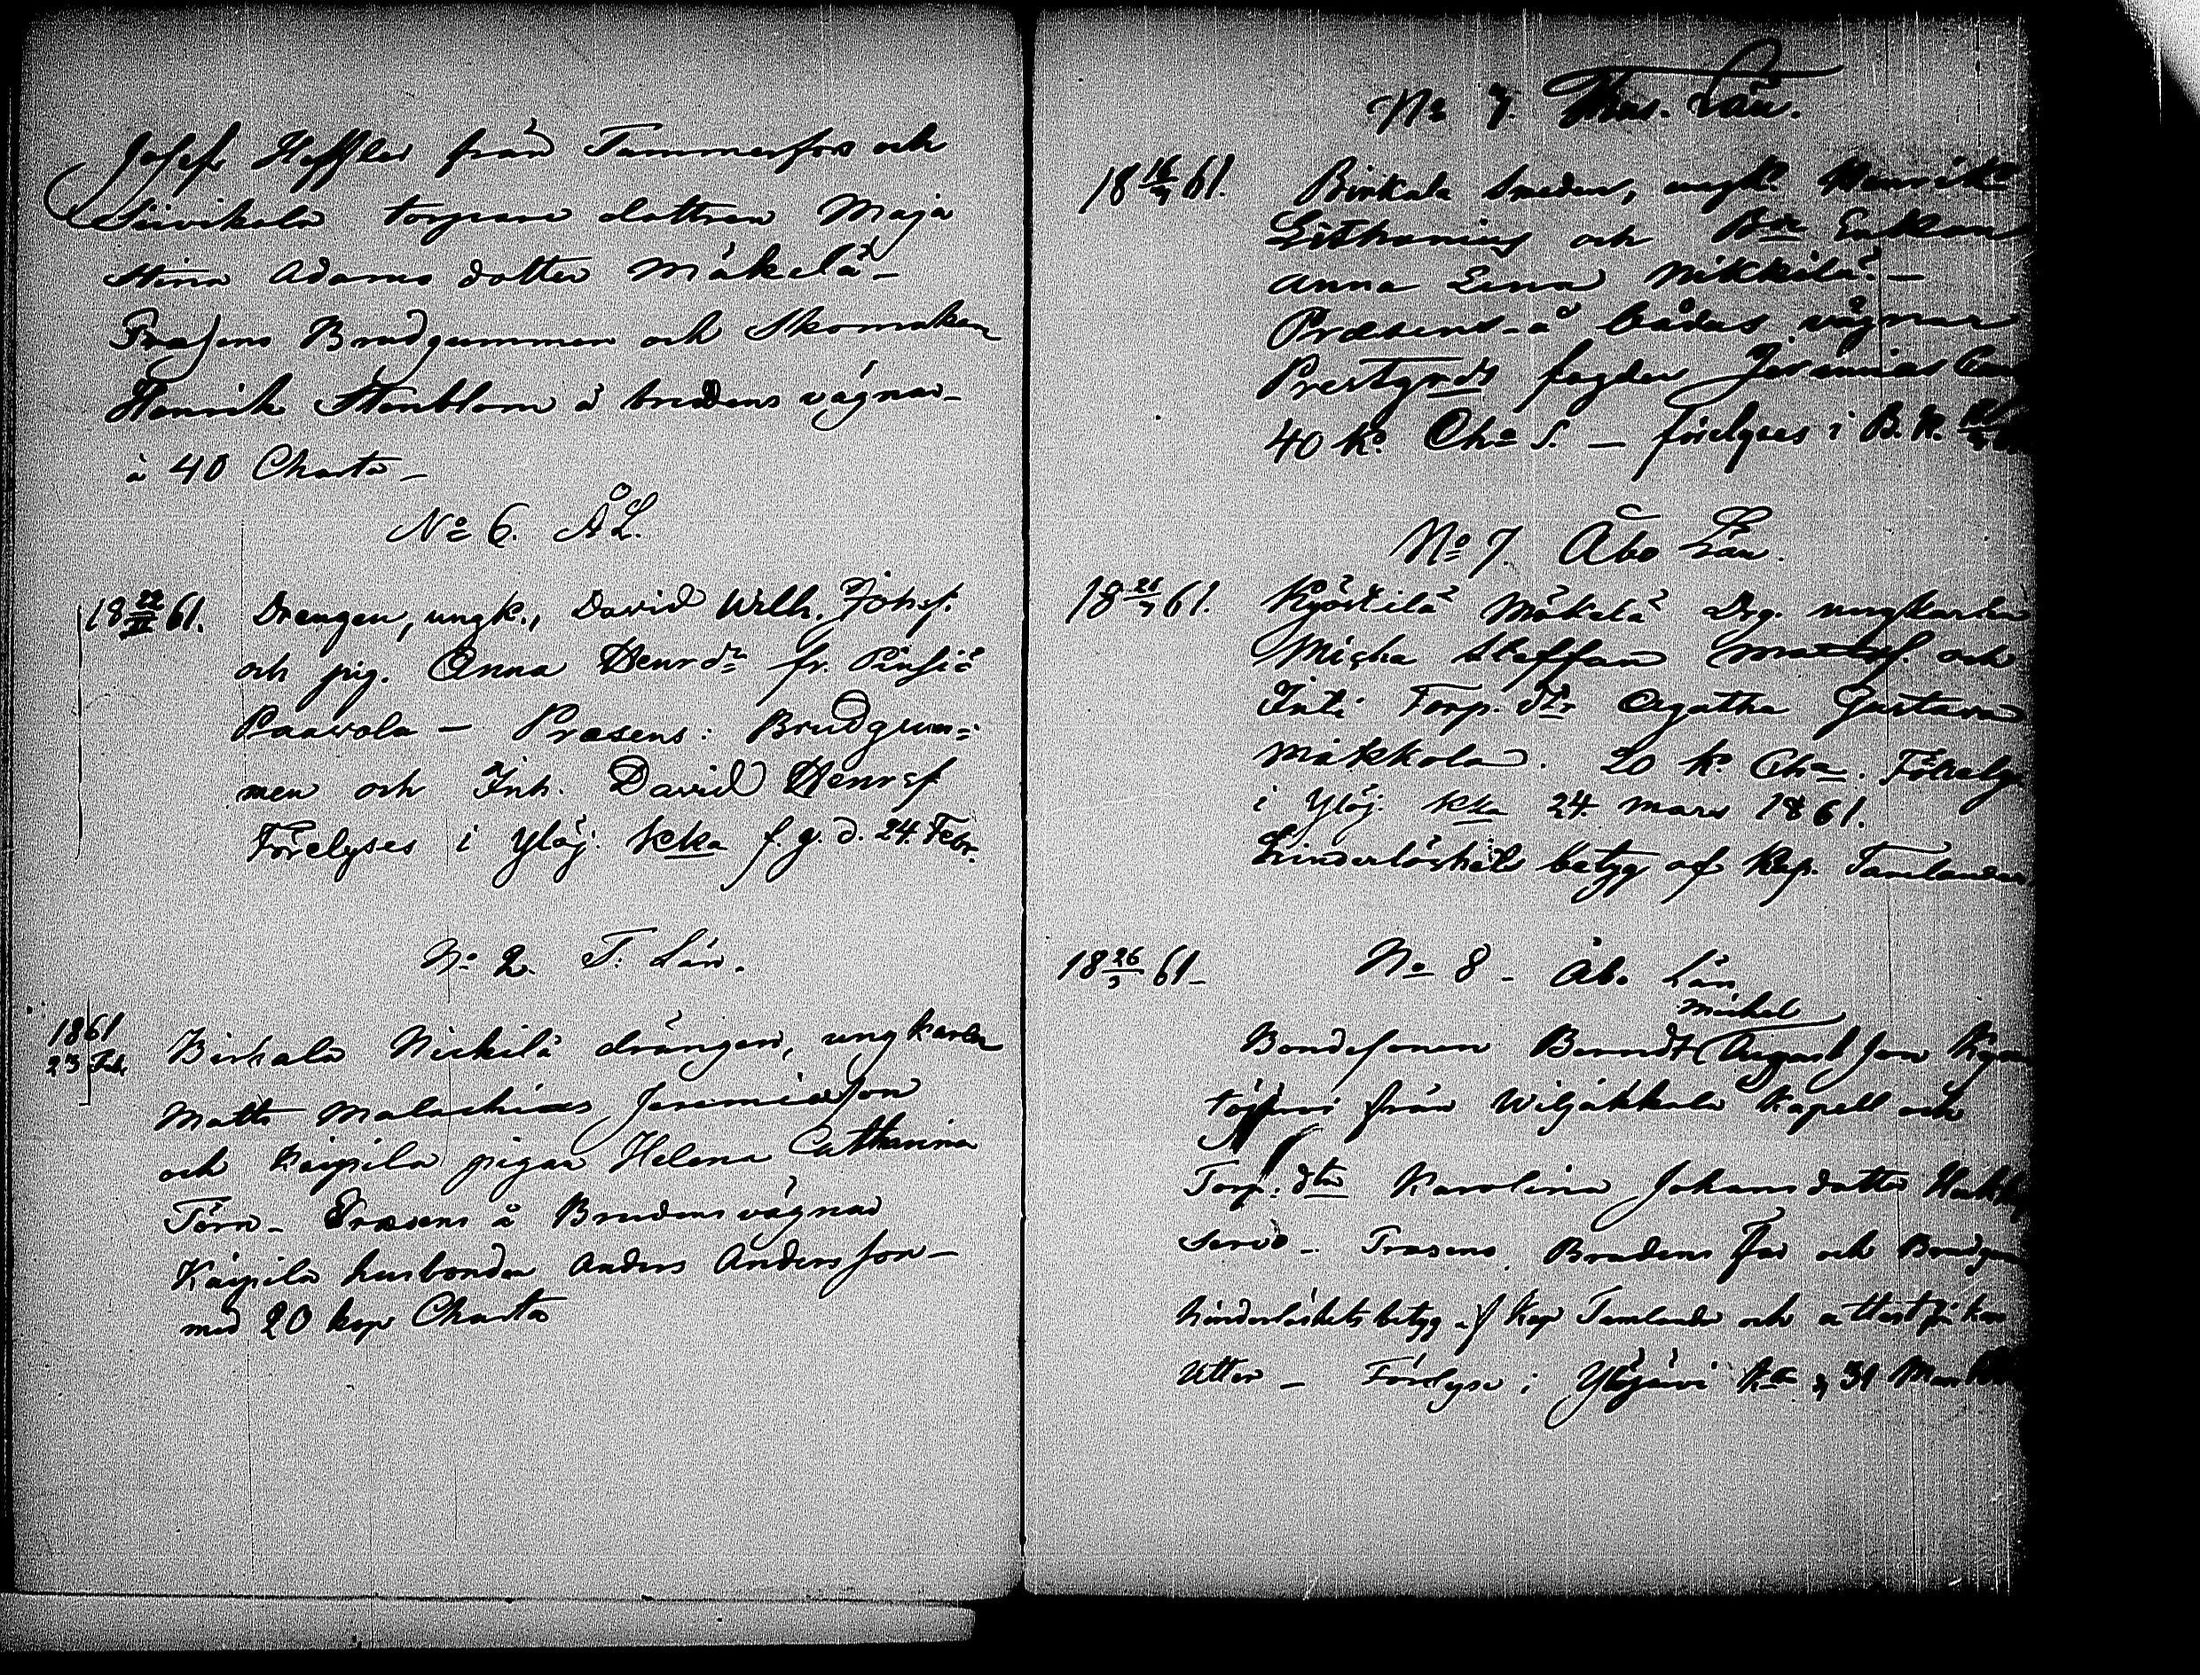 Josef Heffler från Tammerfors och
Siivikala torpare dottren Maja
Stina Adams dotter Mäkelä –
Præsens Brudgummen och Skomakaren
Henrik Stenblom å brudens vägnar –
à 40 Charta –
No 6. ÅL.
18 22/II 61. Drengen, ungk., David Wilh. Johsf.
och pig. Anna Henrdr fr. Pinsiö
Paavola – Præsens: Brudgum=
men och Inh. David Henrsf
Förelyses i Ylöj. kka f. g. d. 24. Febr.
No 2. T. Län.
1861
23 Feb. Birkala Nickilä drängen, ungkarlen
Matts Malachias Jeremiasson
och Käipilä pigan Helena Catharina
Törn – Præsens å Brudens vägnar
Käipilä husbonden Anders Andersson –
med 20 kop Charta
No 7. Län.
18 61. Birkala Smeden, ungk. Henrik
och Enkan
Anna Lena Nikkilä –
Præsens å bådas vägnar
Prestgrds fogden Jeremias
40 k. Cha S. – förelyses i B. K.
No 7. Åbo Län.
18 61. Kyöstilä Mäkelä Drg. ungkarlen
Micha Steffan Mattsf. och
Inti Torp. dtr Agatha Gustava
Mäkkola. 20 k. Cha. Förelys
i Ylöj. kka 24. mars 1861.
Hinderlöshets betyg af Kap. Tamlander
18 26/3 61 – No 8 – Åbo Län
Michel
Bondesonen Berndt August Jon
från Wiljakkala Kapell och
Torp. dtr Karolina Johansdotter
– Præsens. Brudens Far och Brudgu
hinderlöshets betyg af Kap Tamlander och attest
– Förelyses i Ylöjärvi 31 Mars